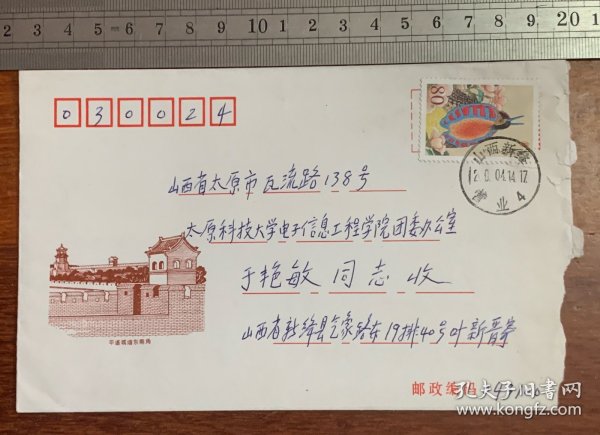 2 3 4 5 6 7 8 9 10 11 12 13 14 15 16 17 18 19 20
030024
80
山西新绛
04.14.17
营业 4
山西省太原市瓦流路138号
太原科技大学电子信息工程学院团委办公室
于艳敏同志收
山西省新绛县气象路东19排40号叶新
平遥城墙东南角
邮政编码
孔夫子旧书网
www.kongfz.com